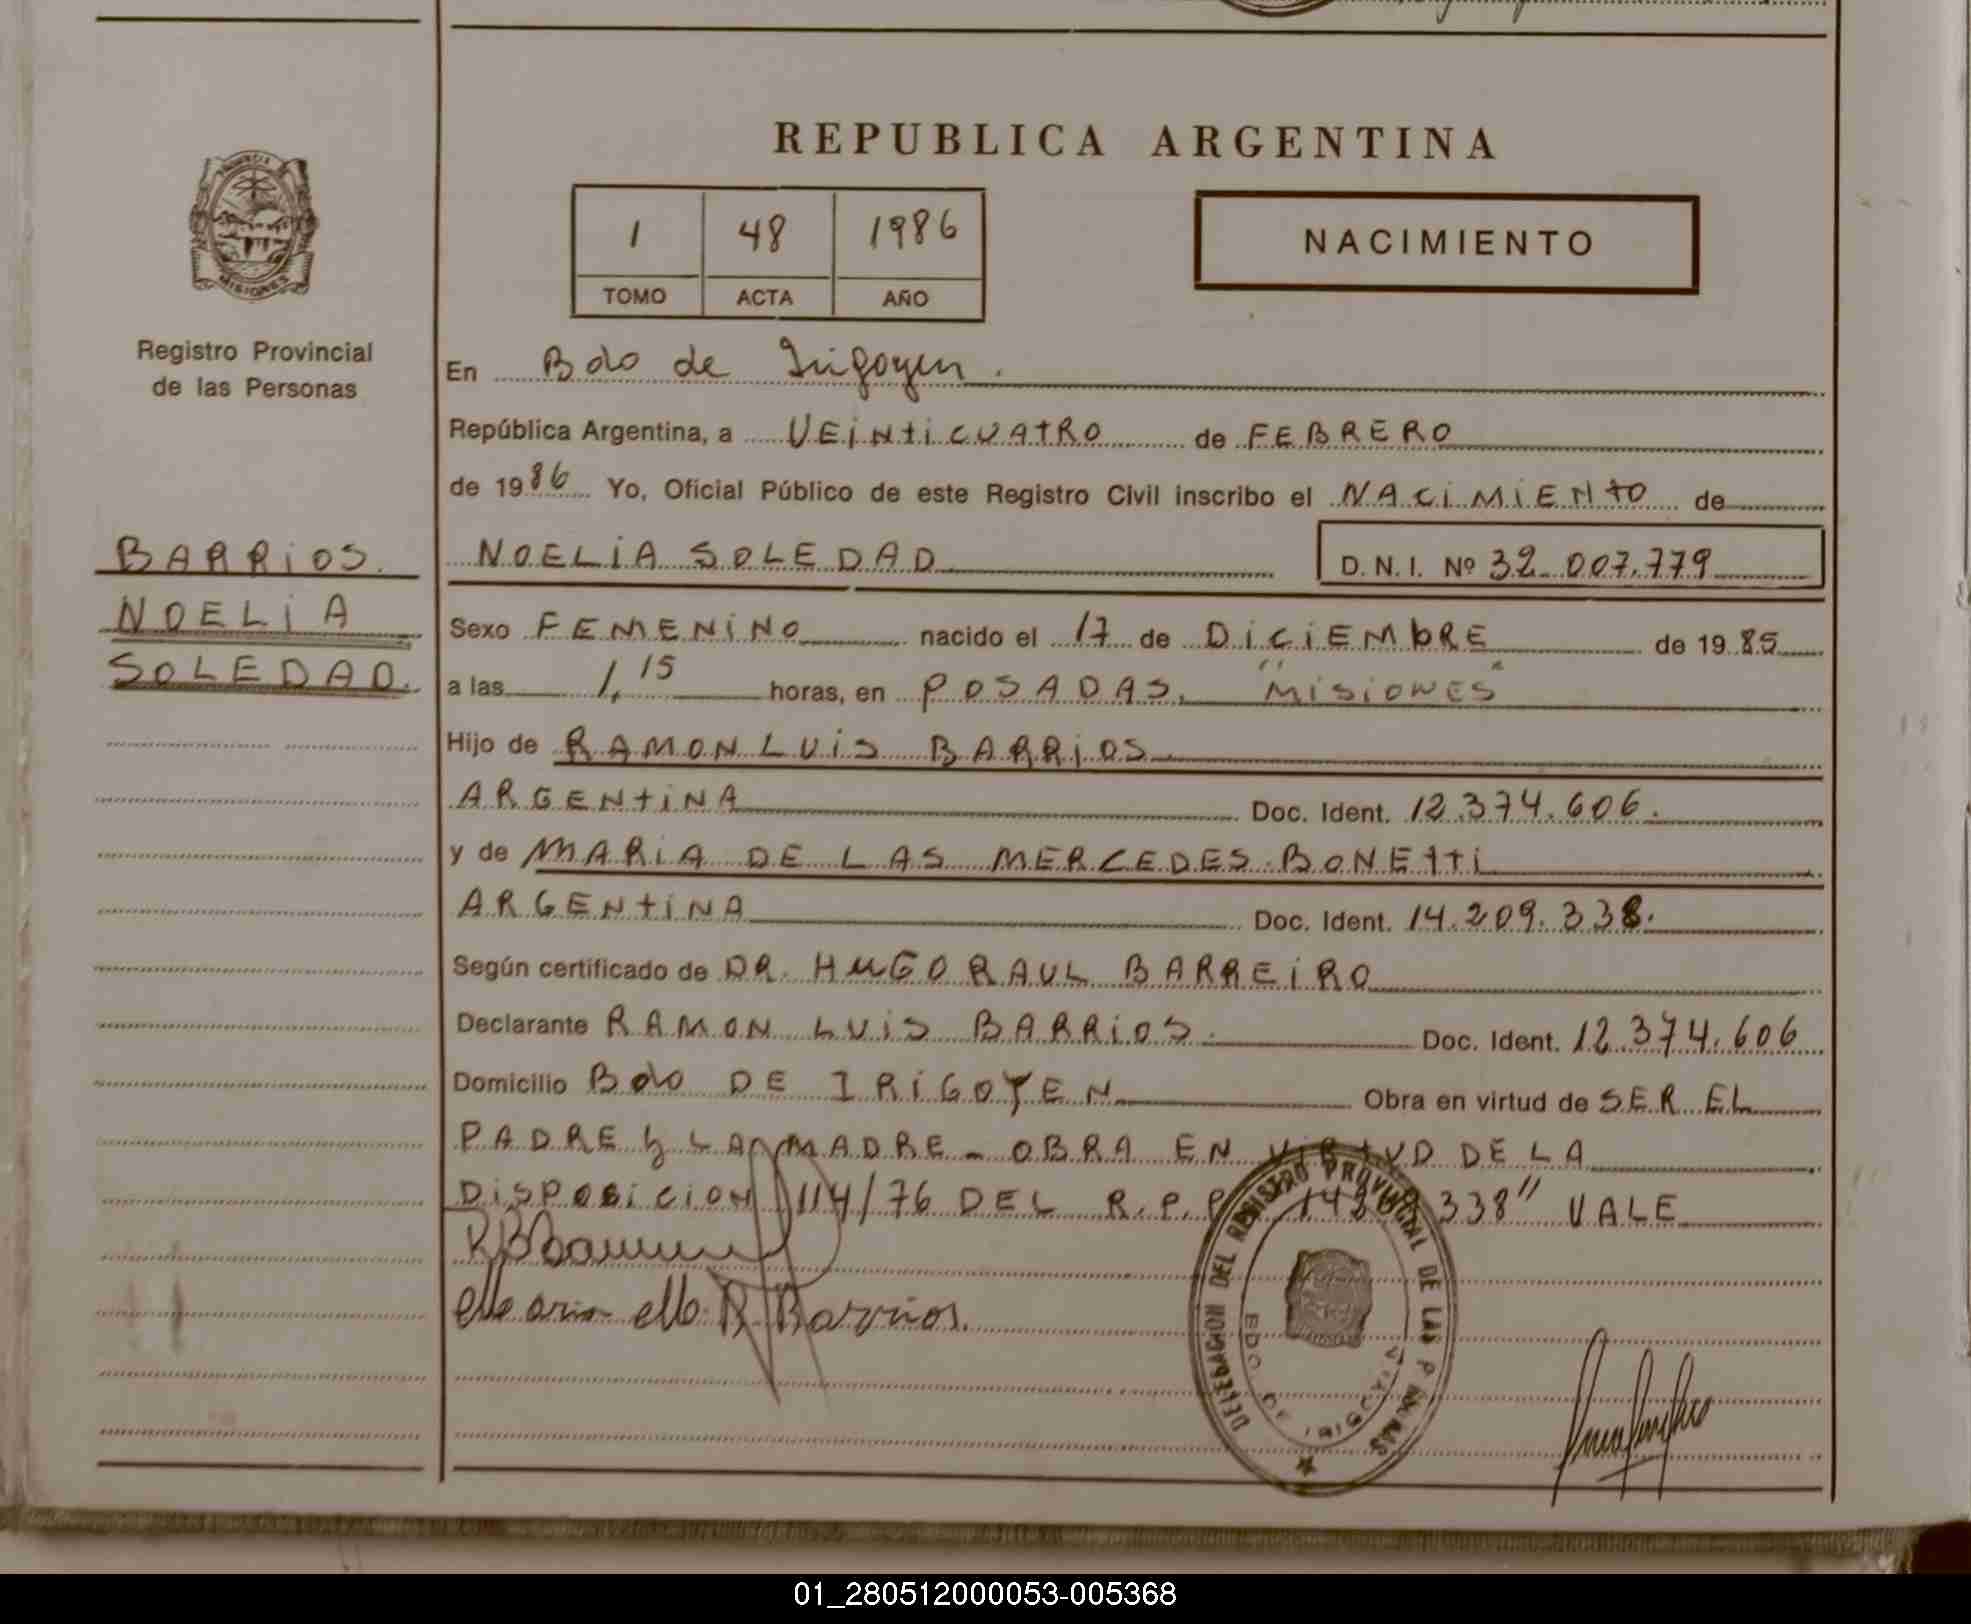 REPUBLICA ARGENTINA
PROVINCIA
MISIONES
Registro Provincial
de las Personas
1 48 1986
TOMO ACTA AÑO
NACIMIENTO
En Bdo de Irigoyen.
República Argentina, a VEINTICUATRO de FEBRERO
de 1986 Yo, Oficial Público de este Registro Civil inscribo el NACIMIENTO de
BARRIOS.
NOELIA
SOLEDAD.
NOELIA SOLEDAD D.N.I. Nº 32.007.779
Sexo FEMENINO nacido el 17 de DICIEMbRE de 1985
a las 1,15 horas, en POSADAS, "MISIONES"
Hijo de RAMON LUIS BARRIOS
ARGENTINA Doc. Ident. 12.374.606.
y de MARIA DE LAS MERCEDES BONETTI
ARGENTINA Doc. Ident. 14.209.338.
Según certificado de DR. HUGO RAUL BARREIRO
Declarante RAMON LUIS BARRIOS. Doc. Ident. 12.374.606
Domicilio Bdo DE IRIGOYEN Obra en virtud de SER EL
PADRE y LA MADRE - OBRA EN VIRTUD DE LA
DISPOSICION 114/76 DEL R.P.P 338" VALE
Barrios.
DELEGACION DEL REGISTRO PROVINCIAL DE LAS P
BDO DE IRIGOYEN
01_280512000053-005368